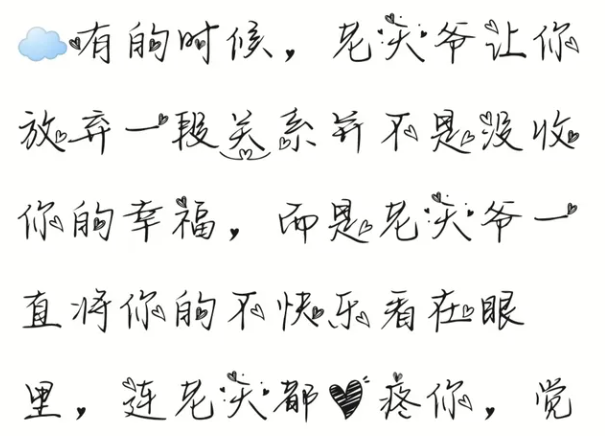 ☁️有的时候，老天爷让你
放弃一段关系并不是没收
你的幸福，而是老天爷一
直将你的不快乐看在眼
里，连老天都🖤疼你，觉